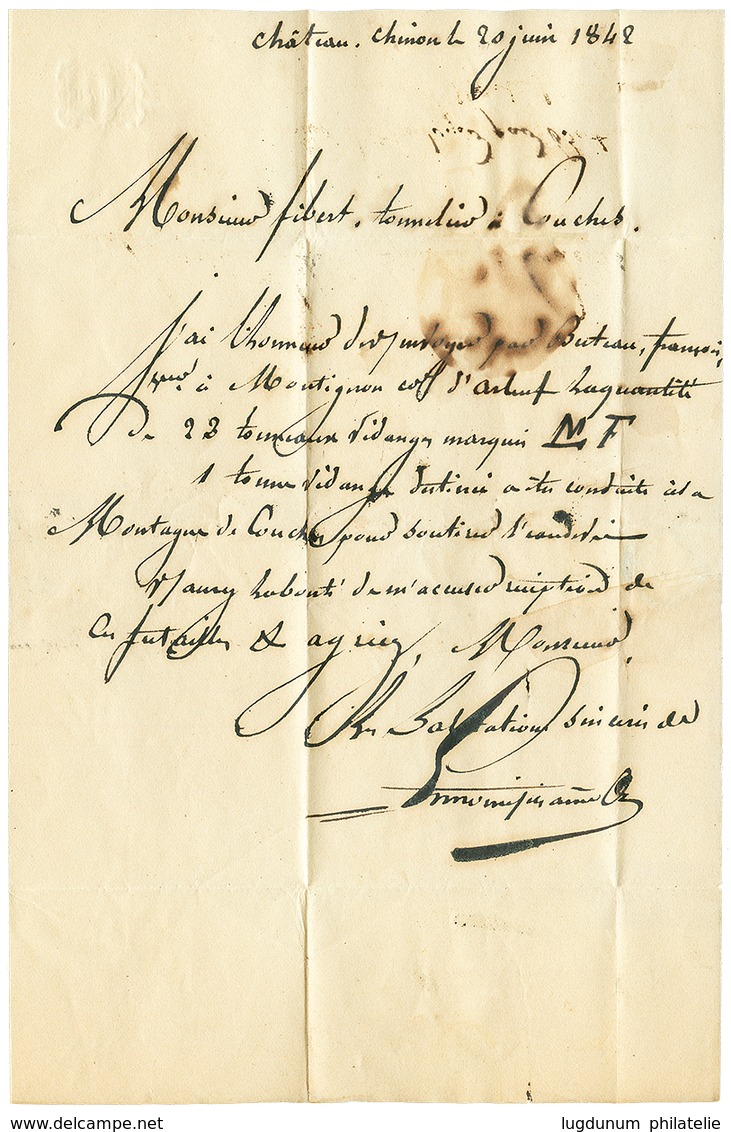 Château-Chinon le 20 juin 1842
Monsieur fibert, tonnelier à Couches.
J'ai l'honneur de v/ envoyer par Buteau, françois,
à Montignon d'arleuf la quantité
De 23 tonneaux vidanges marqués MF
1 tonne vidange destinée a etre conduite à la
Montagne de Couches pour soutirer l'eau de vie
v/ aurez la bonté de m'accuser réception de
Ces futailles & agréez, Monsieur,
Les Salutations sincères de
lugdunum philatelie